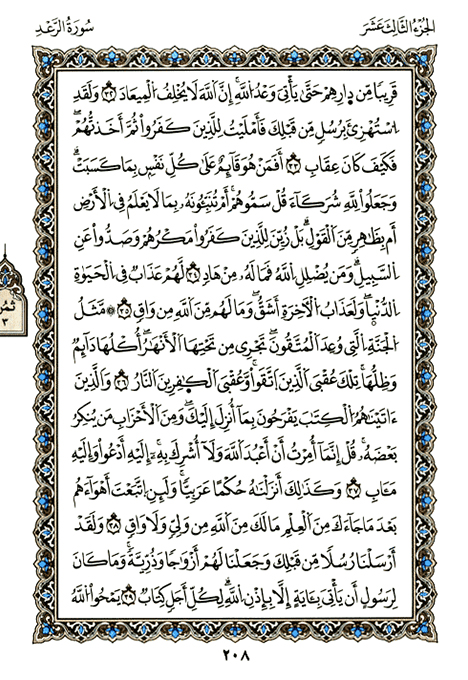 الجزء الثالث عشر
سورة الرعد
قريبا من دارهم حتى يأتي وعد الله إن الله لا يخلف الميعاد ٣٢ ولقد
استهزئ برسل من قبلك فأمليت للذين كفروا ثم أخذتهم
فكيف كان عقاب ٣٣ أفمن هو قائم على كل نفس بما كسبت
وجعلوا لله شركاء قل سموهم أم تنبئونه بما لا يعلم في الأرض
أم بظاهر من القول بل زين للذين كفروا مكرهم وصدوا عن
السبيل ومن يضلل الله فما له من هاد ٣٤ لهم عذاب في الحيوة
الدنيا ولعذاب الآخرة أشق وما لهم من الله من واق ٣٥ ۞ مثل
الجنة التي وعد المتقون تجري من تحتها الأنهار أكلها دائم
وظلها تلك عقبى الذين اتقوا وعقبى الكفرين النار ٣٦ والذين
ءاتينهم الكتب يفرحون بما أنزل إليك ومن الأحزاب من ينكر
بعضه قل إنما أمرت أن أعبد الله ولا أشرك به إليه أدعوا وإليه
مئاب ٣٧ وكذلك أنزلنه حكما عربيا ولئن اتبعت أهواءهم
بعد ما جاءك من العلم ما لك من الله من ولي ولا واق ٣٨ ولقد
أرسلنا رسلا من قبلك وجعلنا لهم أزواجا وذرية وما كان
لرسول أن يأتي بئاية إلا بإذن الله لكل أجل كتاب ٣٩ يمحوا الله
ثمن
٣
٢٠٨